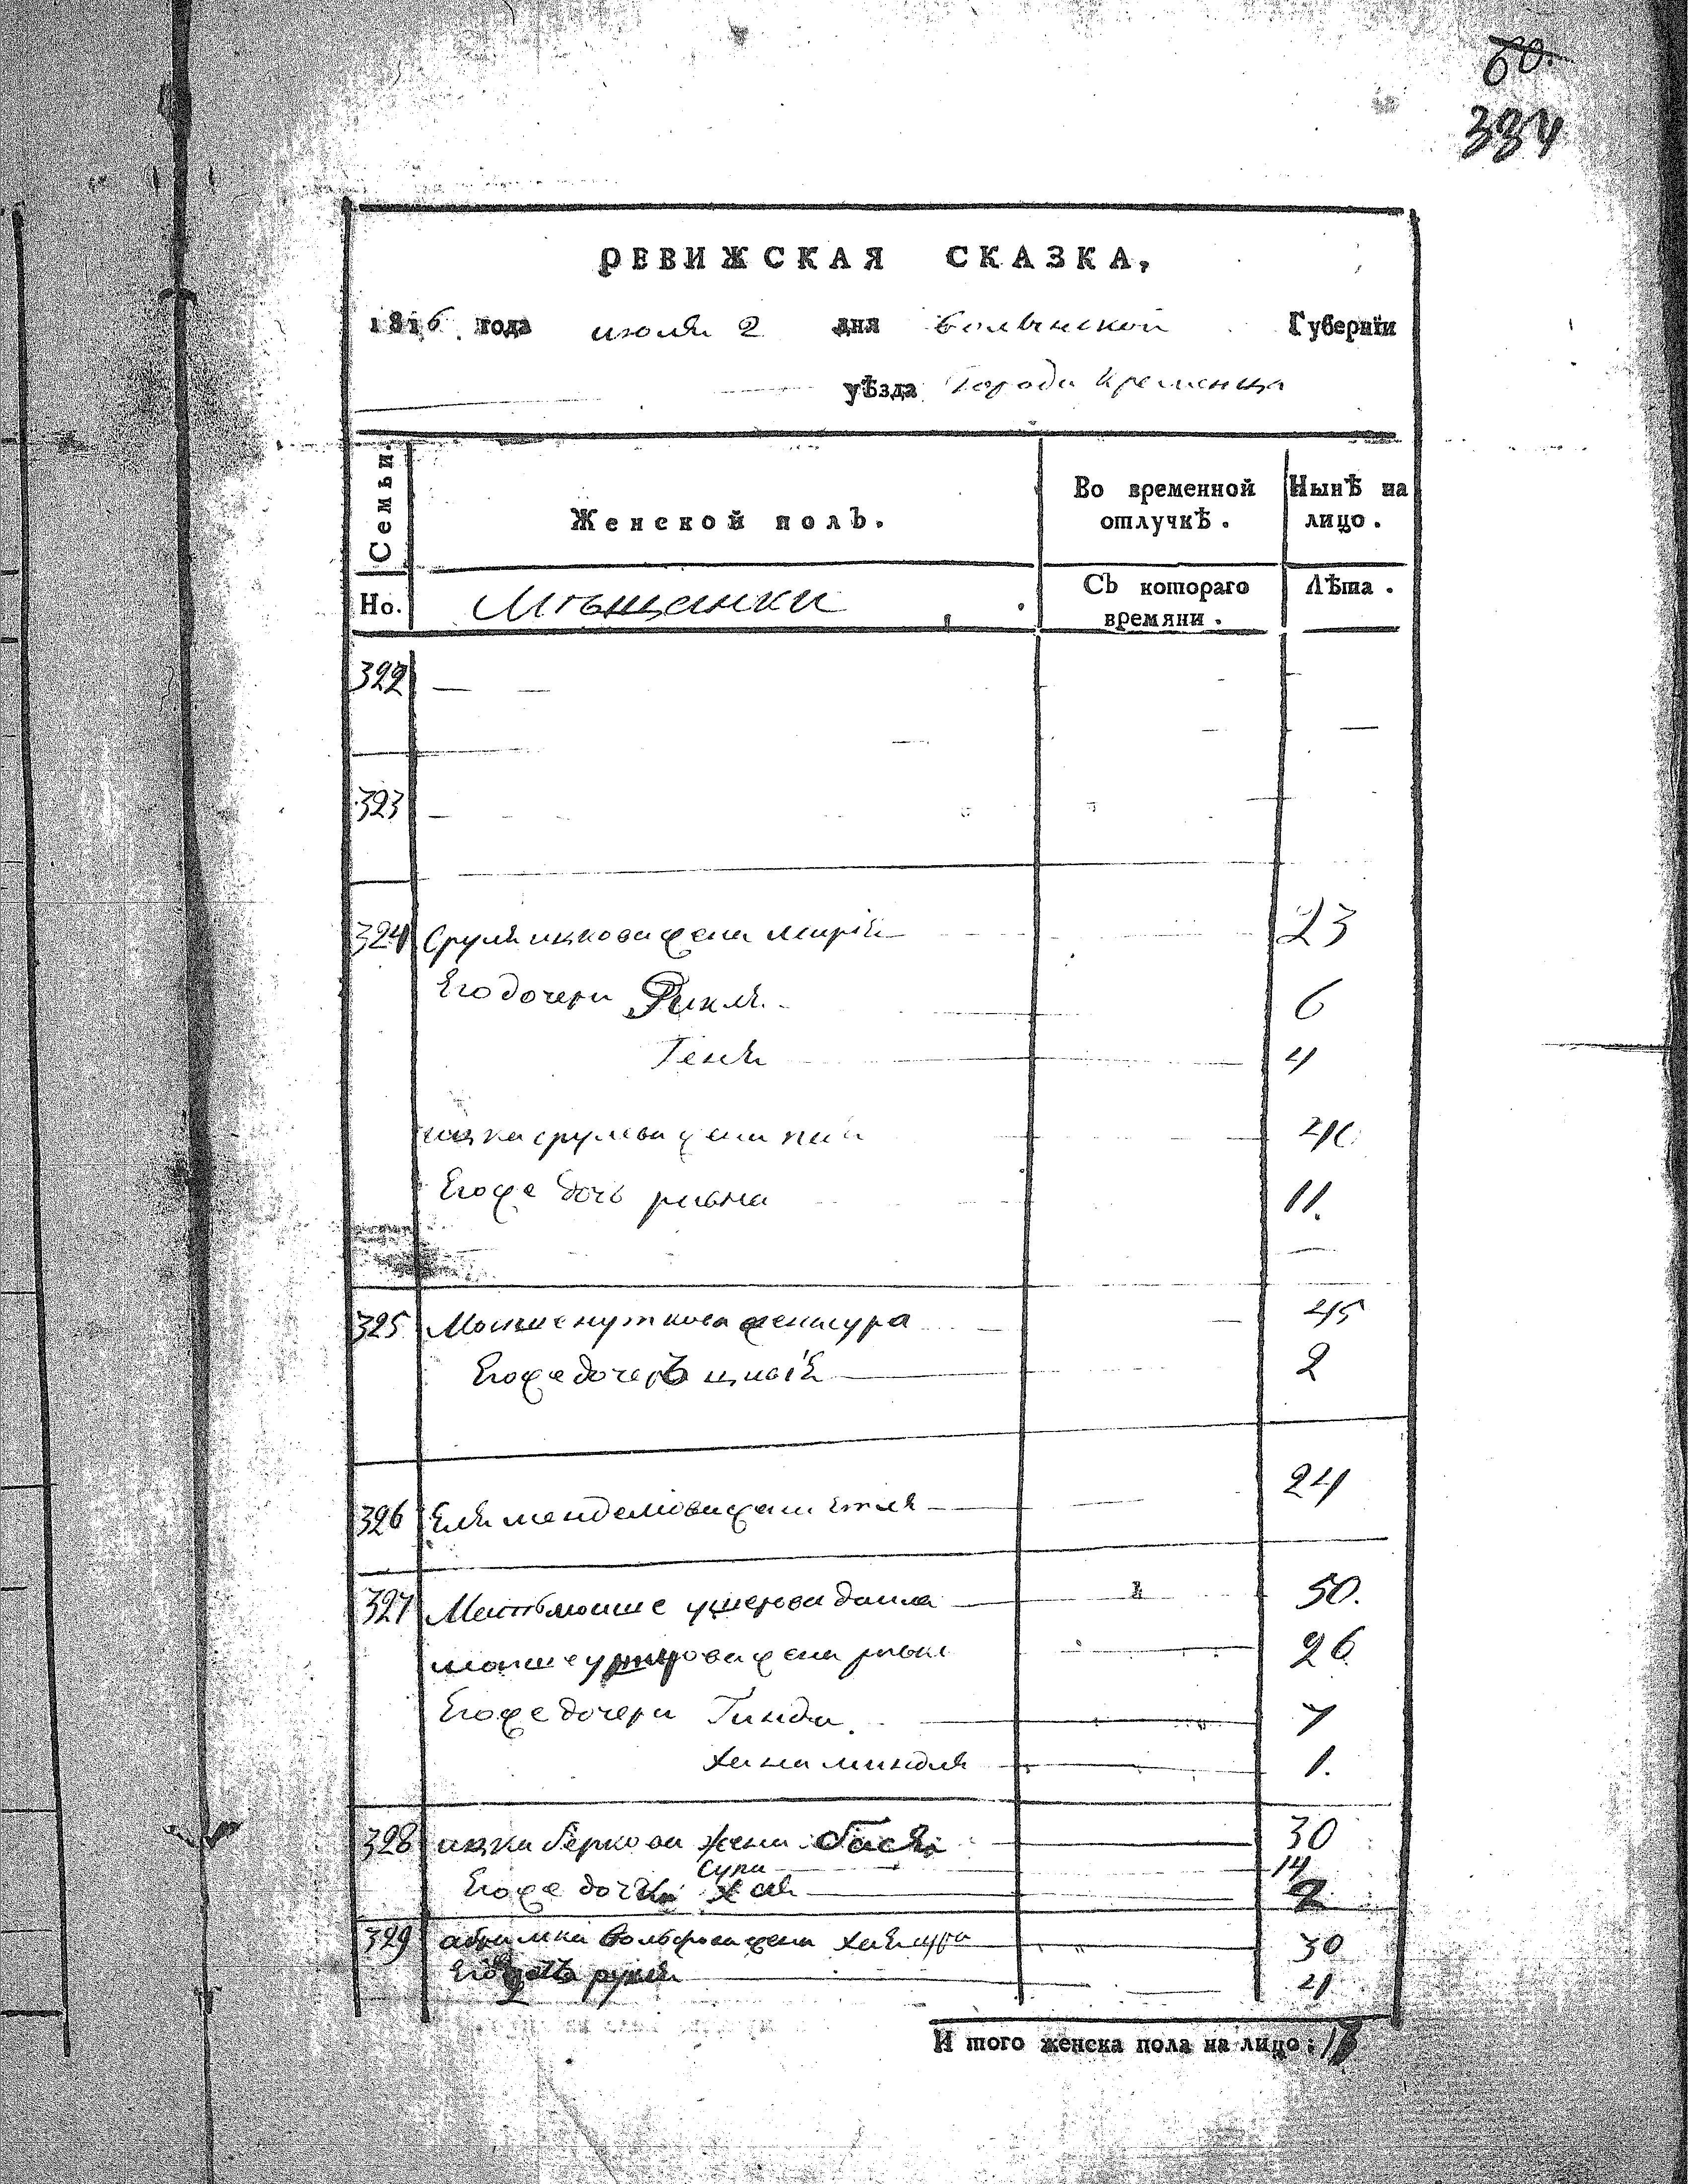 60.
334
РЕВИЖСКАЯ СКАЗКА,
1816 года июля 2 дня волынской Губерніи
уѣзда Города Кременца
Семьи.
Женской полЪ.
Во временной отлучкѣ.
Нынѣ на лицо.
Но.
Мѣщанки
СЪ котораго времяни.
Лѣта.
322
323
324 Сруля ицкова жена марія 23
Его дочери Рикля 6
Геня 4
ицка срулева жена 40
Егоже дочь ривка 11.
325 Мошке жена сура 45
Егоже дочерЪ 2
326 Еля менделиова жена етля 24
327 Мать мошке ушерова 50.
мошке жена 26
Егоже дочери Гинда 7
хана миндля 1.
328 ицка беркова жена бася 30
Сура 14
Егоже дочки хая 2
329 абрамка вольфова жена хаясура 30
Его рухля 4
И того женска пола на лицо: